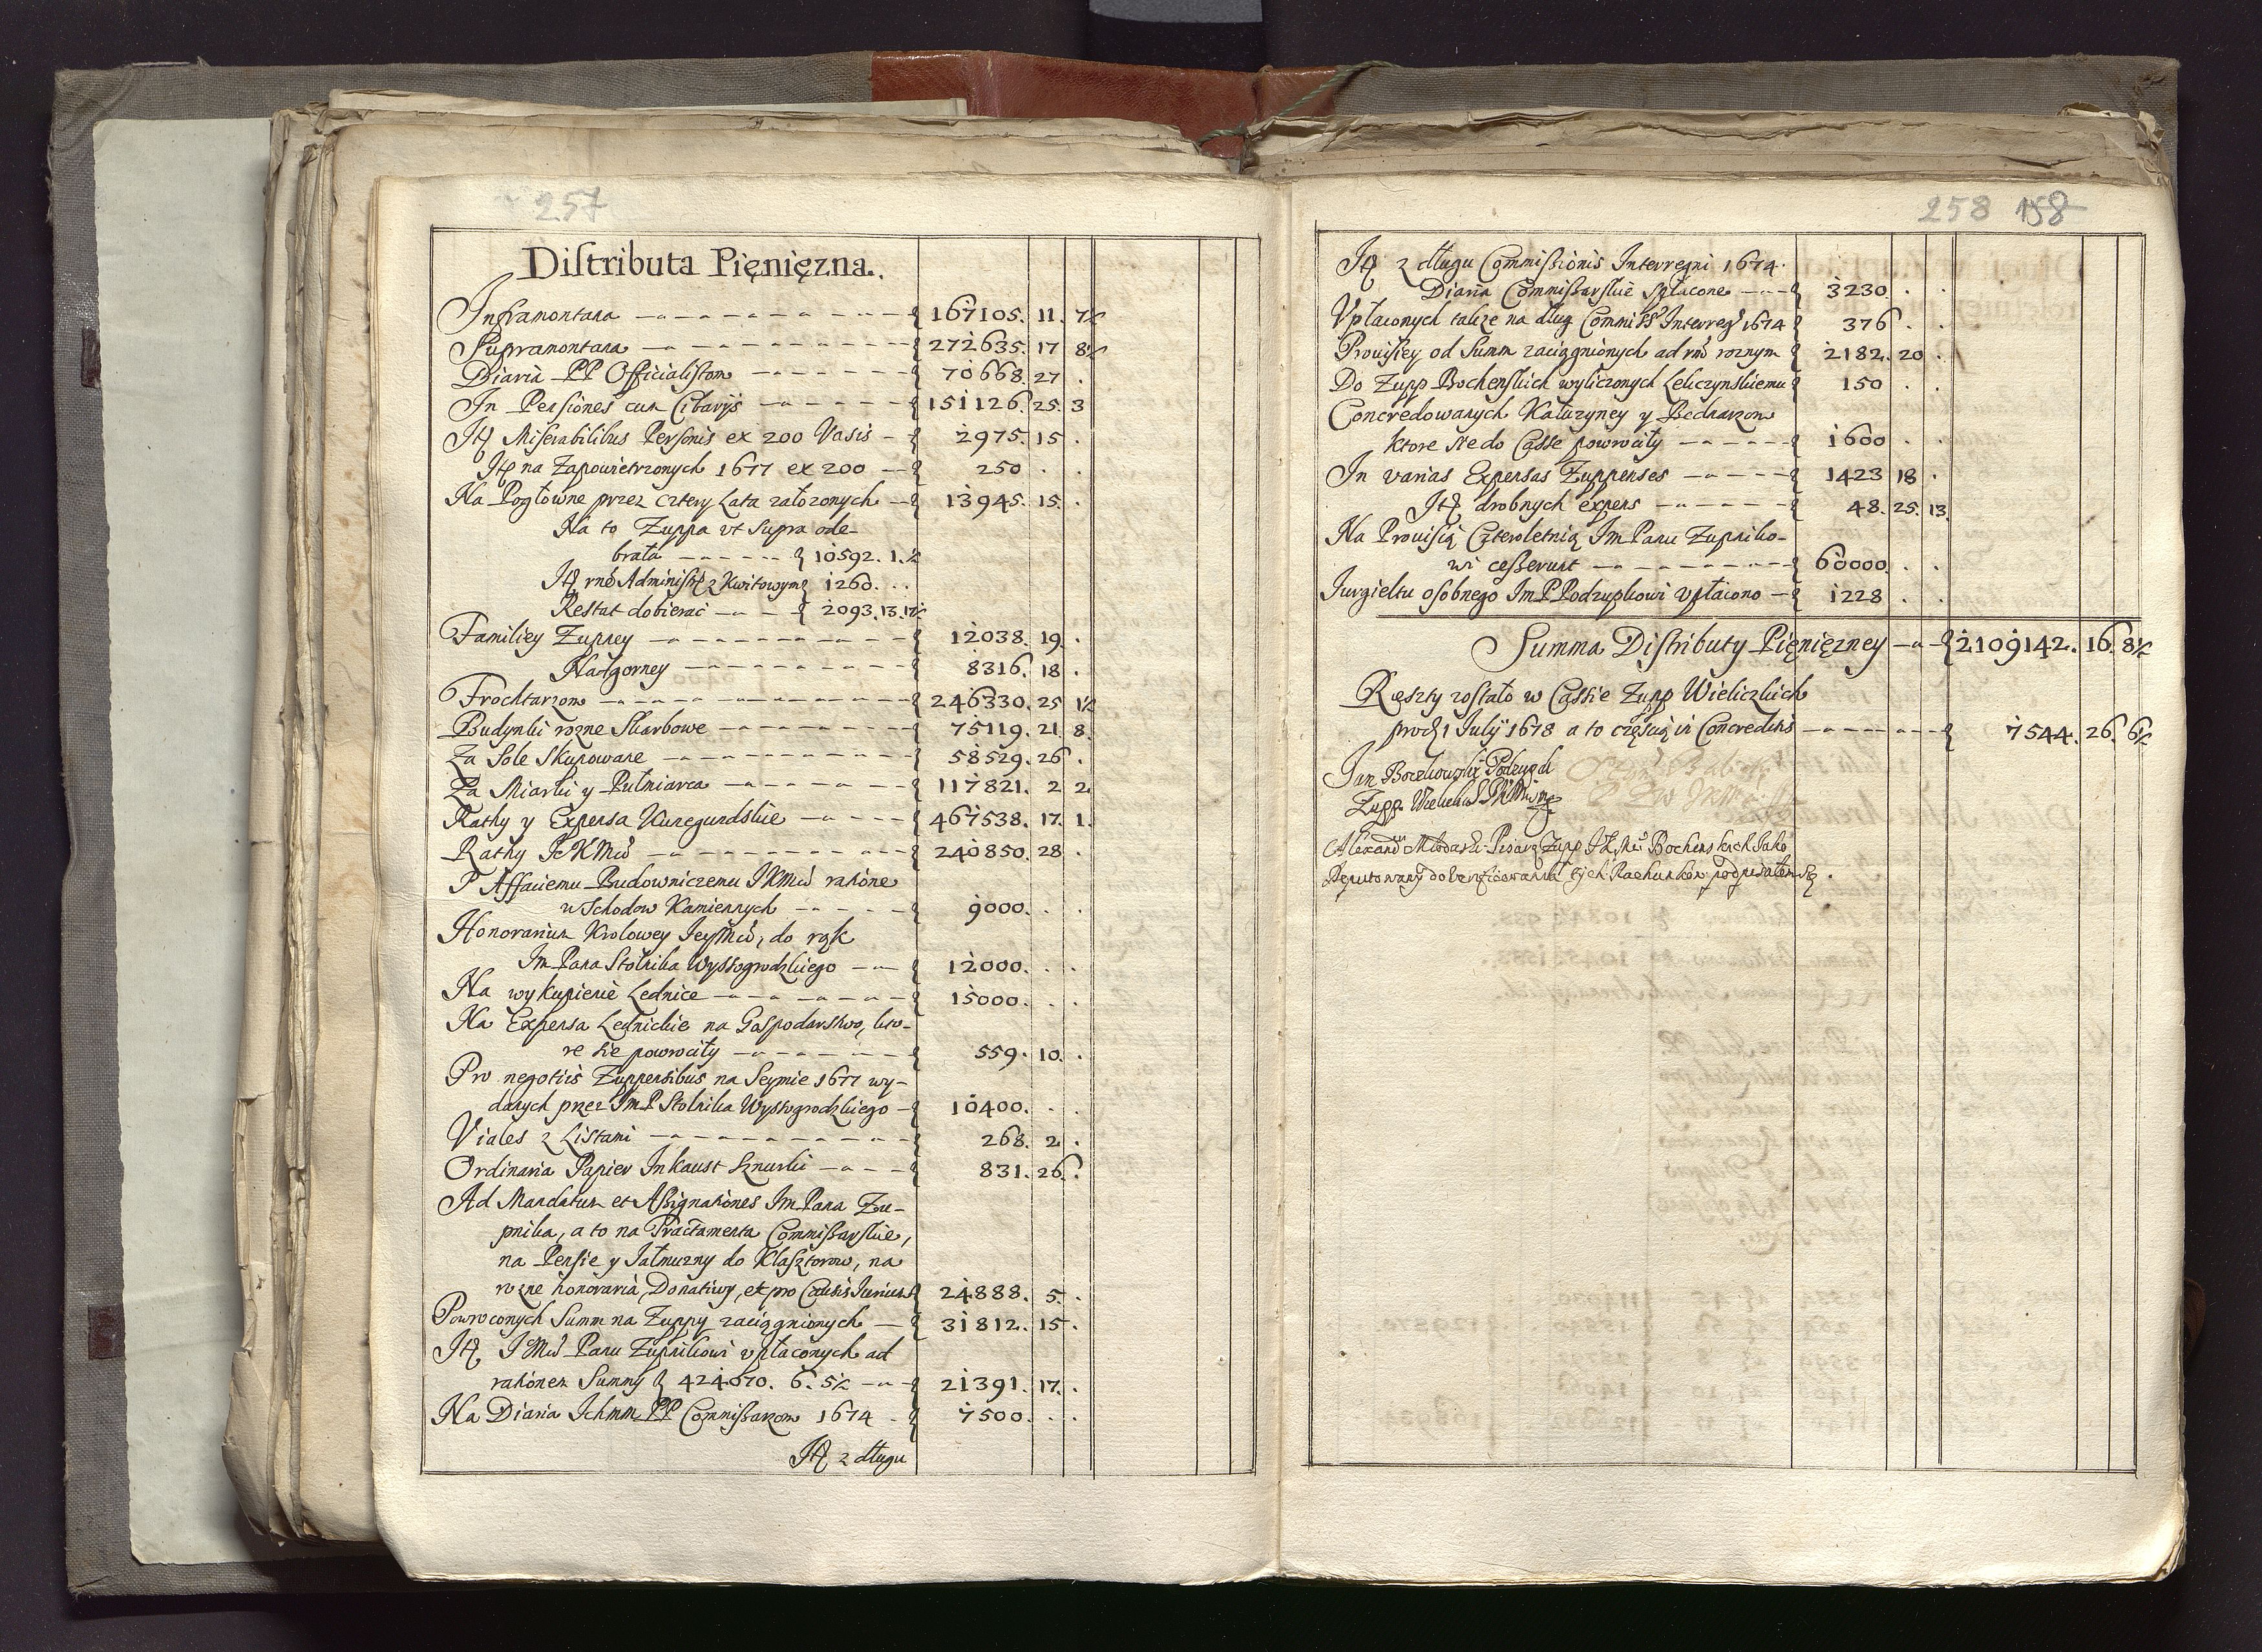 257
Distributa Pięnięzna.
Inframontana 167105. 11. 7½
Supramontana 272635. 17 8½
Diaria PP Officialistow 70668. 27 .
In Pensiones cum Cibarijs 151126. 25. 3
Itę Miserabilibus Personis ex 200 Vasis 2975. 15 .
Itę na Zapowietrzonych 1677 ex 200 250 . .
Na Pogłowne przez cztery Lata załozonych 13945. 15. .
Na to Zuppa vt supra ode-
brała 10592. 1. ½
Itę Administ z Kwitowym 1260. . .
Restat dobierać 2093. 13. 17½
Familiey Zupney 12038. 19. .
Nadgorney 8316. 18 .
Frochtarzom 246330. 25 1½
Budynki rozne Skarbowe 75119. 21. 8.
Za Sole Skupowane 58529. 26 .
Za Miarki y Pułmiarca 117821. 2 2.
Rathy y Expensa Kunegundskie 467538. 17. 1.
Rathy Je KMci 240850. 28 .
P Affaitemu Budowniczemu JKMci ratione
wschodow Kamiennych 9000. . .
Honorarium Krolowey JeyMci, do rąk
Im Pana Stolnika Wyssogrodzkiego 12000. . .
Na wykupienie Lednice 15000. . .
Na Expensa Lednickie na Gospodarstwo, kto-
re się powrociły 559. 10. .
Pro negotiis Zuppensibus na Seymie 1677 wy-
danych przez ImP Stolnika Wyssogrodzkiego 10400. . .
Viales z Listami 268. 2. .
Ordinaria Papier Inkaust Sznurki 831. 26. .
Ad Mandatum et Assignationes Im Pana Zu-
pnika, a to na Tractamenta Commissarskie,
na Pensie y Jałmuzny do Klasztorow, na
rozne honoraria, Donatiwy, et pro Causis Iurium 24888. 5. .
Powroconych Summ na Zuppy zaciągnionych 31812. 15 .
Itę JMci Panu Zupnikowi vpłaconych ad
rationem Summy 424070. 6. 5½ 21391. 17. .
Na Diaria Ichmm PP Commissarzow 1674 7500. . .
Itę z długu
258 158
Itę z długu Commissionis Interregni 1674.
Diaria Commissarskie spłacone 3230. . .
Vpłaconych także na dług Commiss Interreg 1674 376 . .
Prouisiey od Summ zaciągnionych ad roznym 2182. 20 .
Do Zupp Bochenskich wyliczonych Leliczynskiemu 150 . .
Concredowanych Katuzyney y Bednarzom
ktore się do Casse powrociły 1600 . .
In varias Expensas Zuppenses 1423 18 .
Itę drobnych expens 48. 25. 13.
Na Prouisią Czteroletnią Im Panu Zupniko-
wi cesserunt 60000. . .
Iurgieltu osobnego Im P Podzupkowi vpłacono 1228 . .
Summa Distributy Pięnięzney 2109142. 16. 8½
Reszty zostało w Cassie Zupp Wielickich
pro 1 July 1678 a to częscią in Concreditis 7544. 26. 6½
Jan Podzupek
Zupp
Alexand Pisarz Zupp JKMci Bochenskich Jako
Deputowany do tych Rachunkow podpisałem się .